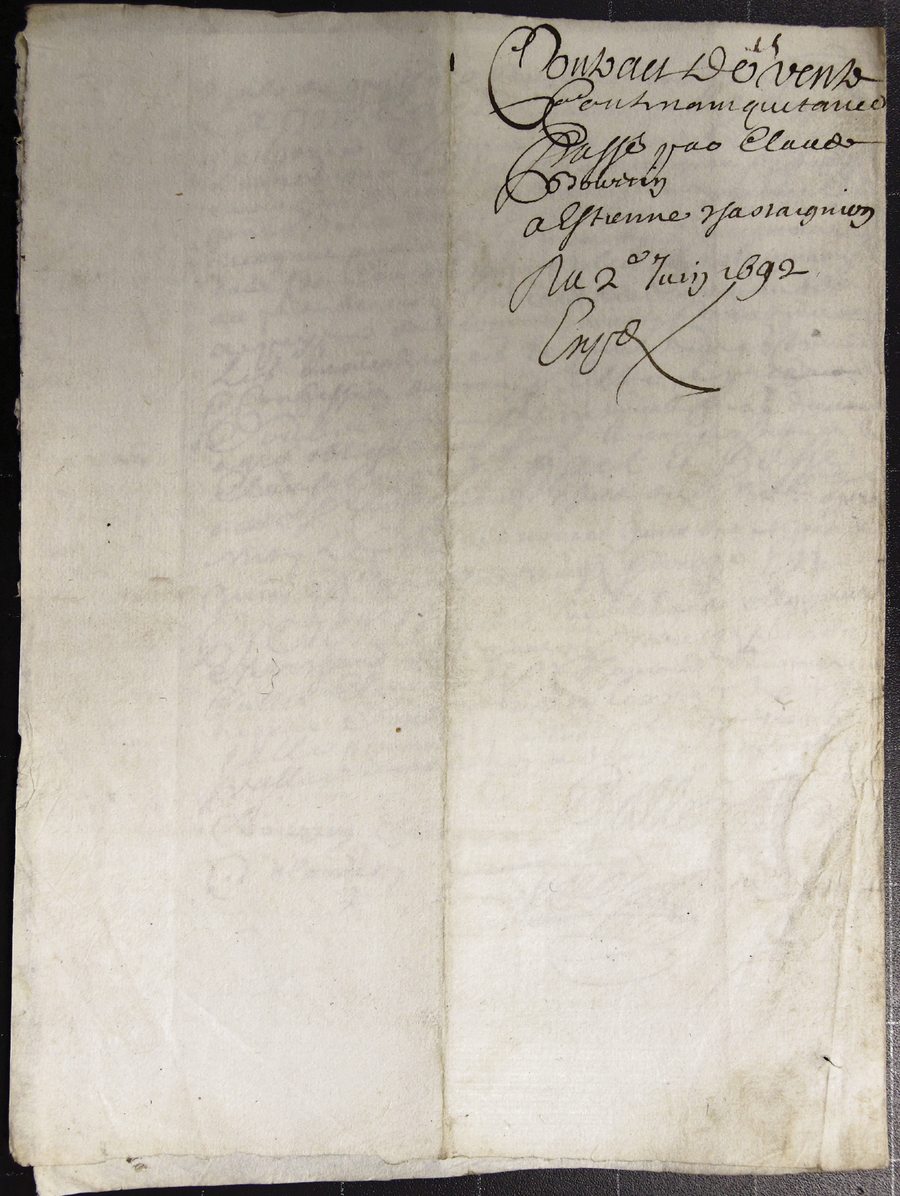 Contract de vente
Contenant quitance
Passé par Claude
Bourrin
a Estienne
Du 2e Juin 1692
Expe